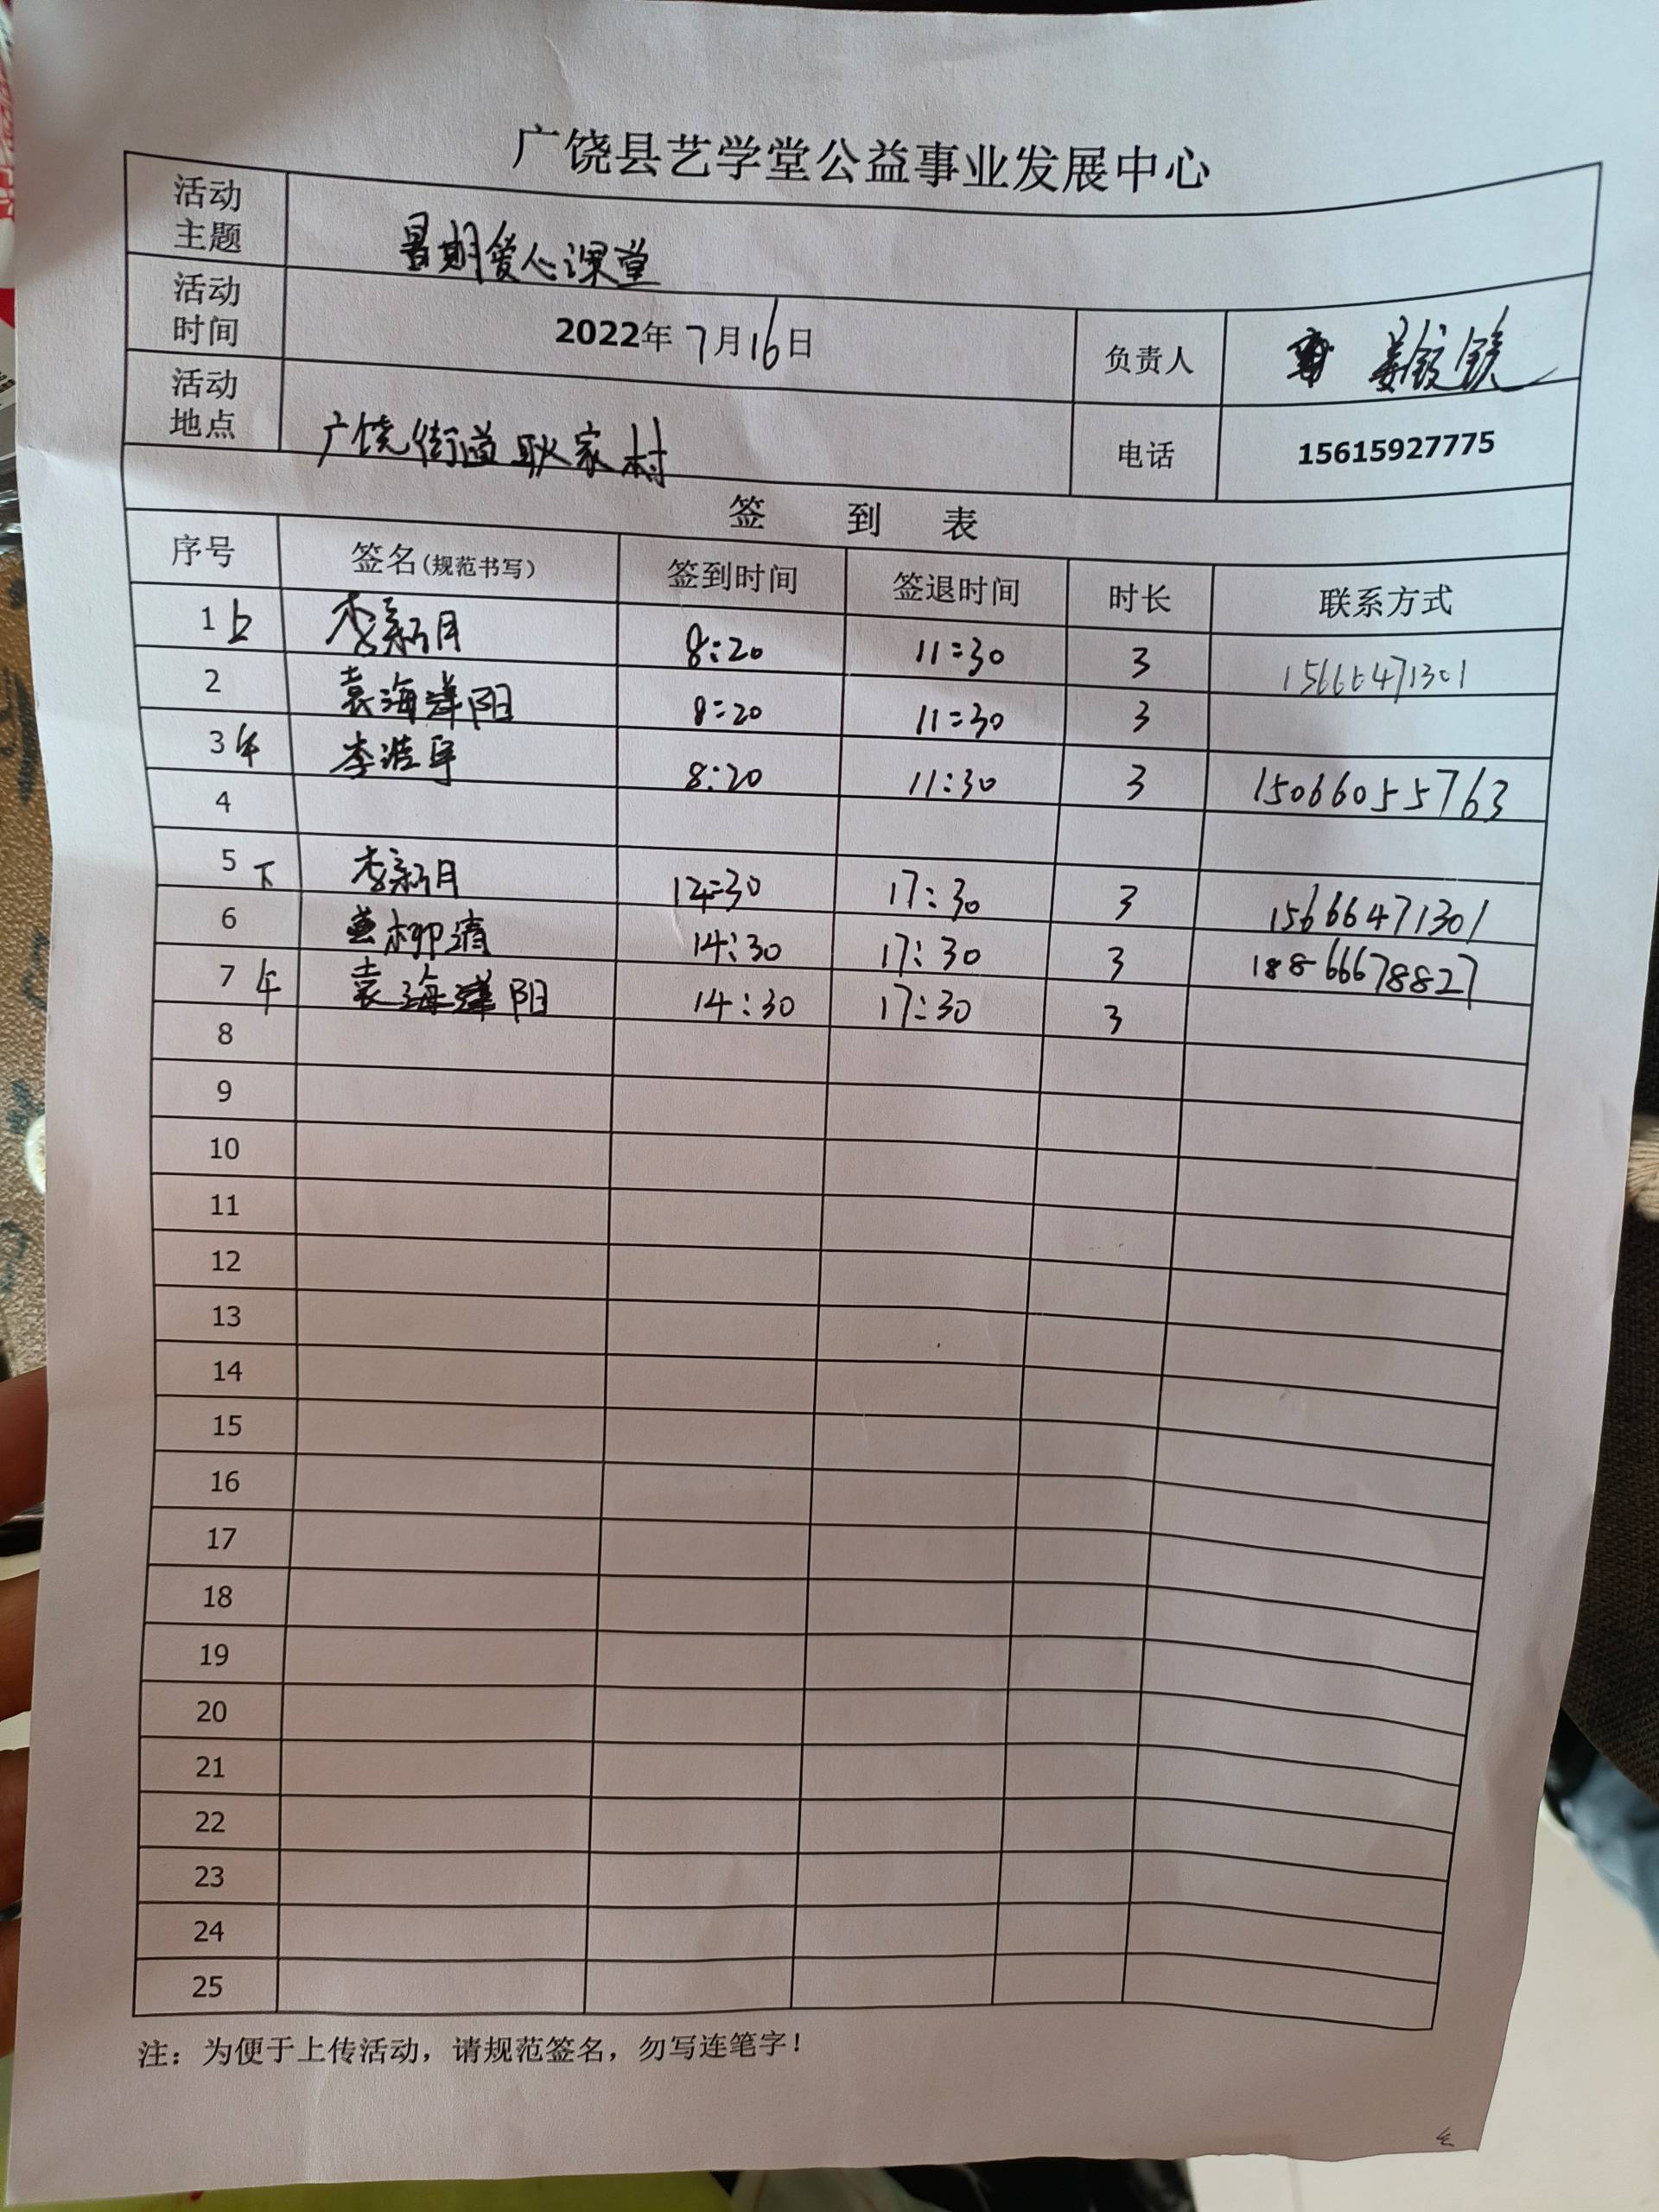 广饶县艺学堂公益事业发展中心
活动主题 暑期爱心课堂
活动时间 2022年7月16日 负责人 姜
活动地点 广饶街道耿家村 电话 15615927775
签 到 表
序号 签名(规范书写) 签到时间 签退时间 时长 联系方式
1 上 李新月 8:20 11:30 3 15666471301
2 袁海洋阳 8:20 11:30 3
3 午 李浩宇 8:20 11:30 3 15066055763
4
5 下 李新月 14:30 17:30 3 15666471301
6 柳清 14:30 17:30 3 18866678827
7 午 袁海洋阳 14:30 17:30 3
8
9
10
11
12
13
14
15
16
17
18
19
20
21
22
23
24
25
注：为便于上传活动，请规范签名，勿写连笔字！